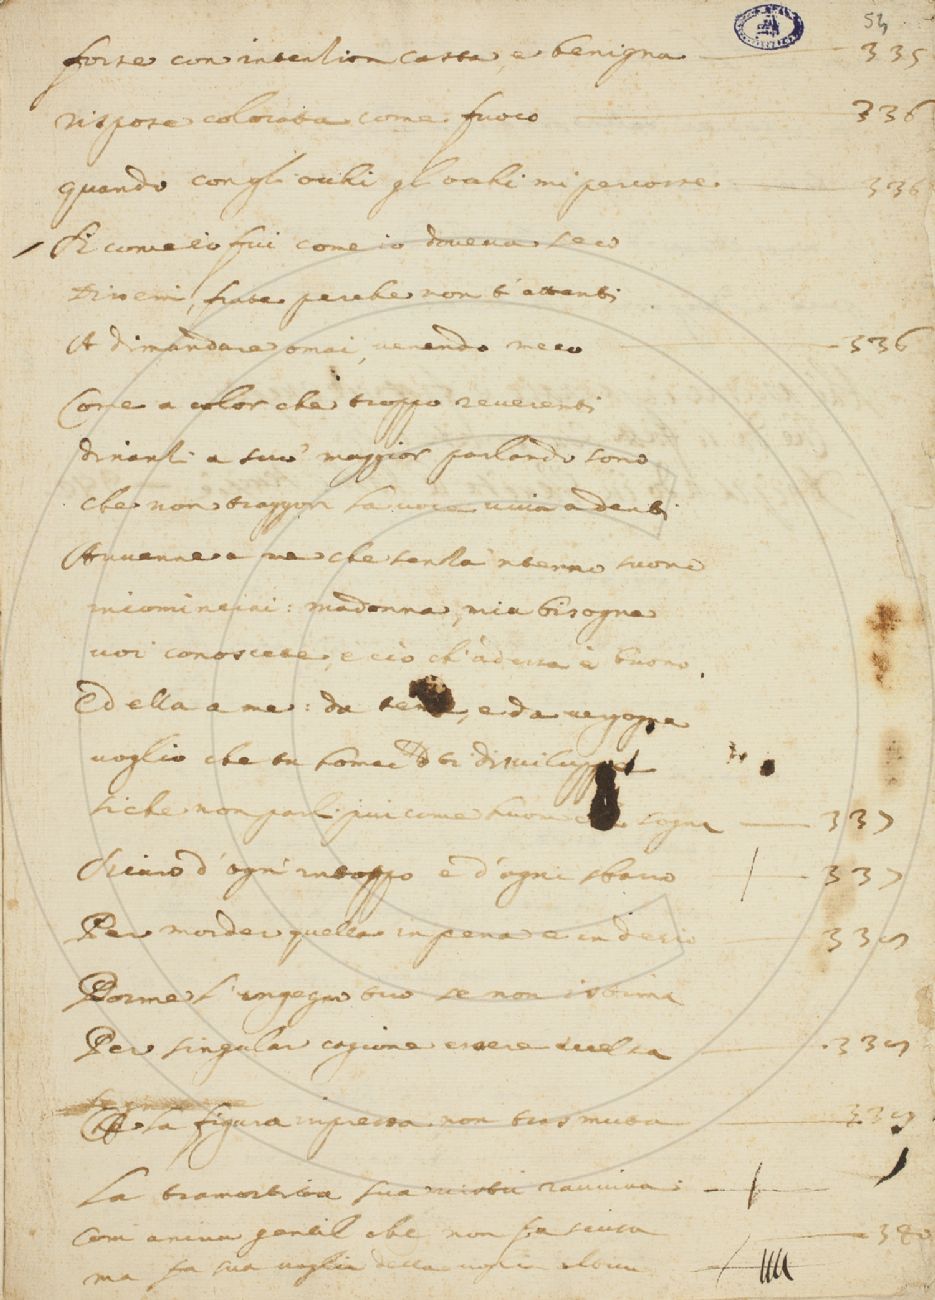 54
forse con intention casta, e benigna 335
rispose colorata come fuoco 336
quando con gli occhi gl occhi mi percosse. 336
Si come io fui come io doveva seco
Dissemi, frate perche non t'attenti
A dimandare omai, venendo meco 336
Come a color che troppo reverenti
dinanti a suo maggior parlando sono
che non traggon la voce viva a denti
Avvenne a me che senza 'nterno suono
incominciai: madonna, mia bisogna
voi conoscete, e ciò ch'ad essa è buono.
Ed ella a me: da tema, e da vergogna
voglio che tu homai ti disviluppe
siche non parli piu come huom che sogna 337
Sicuro d'ogn' intoppo e d'ogni sbarro 337
Per morder quella in pena e in desio 339
Dorme l'ingegno tuo se non istima
Per singular cagione essere eccelsa 339
Che la figura impressa non trasmuta 339
La tramortita sua virtu ravviva:
Com anima gentil che non fa scusa 340
ma fa sua voglia della voglia altrui